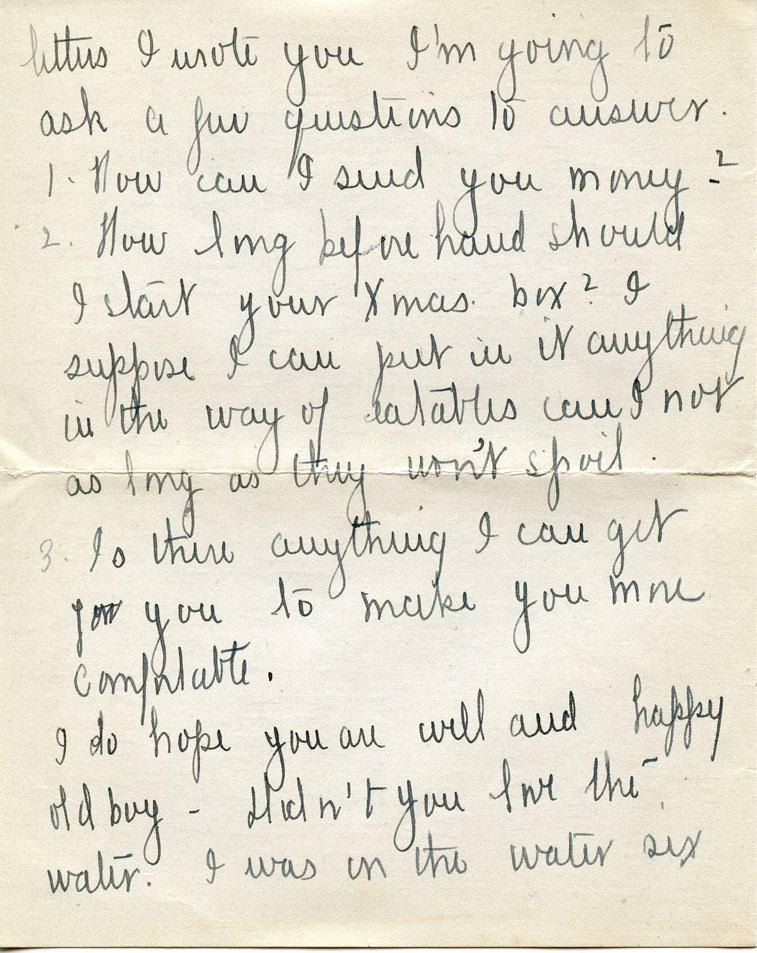 letters I wrote you I'm going to
ask a few questions to answer.
1. How can I send you money?
2. How long before hand should
I start your Xmas. box? I
suppose I can put in it anything
in the way of eatables can I not
as long as they won't spoil.
3. Is there anything I can get
for you to make you more
comfortable.
I do hope you are well and happy
old boy - didn't you love the
water. I was in the water six